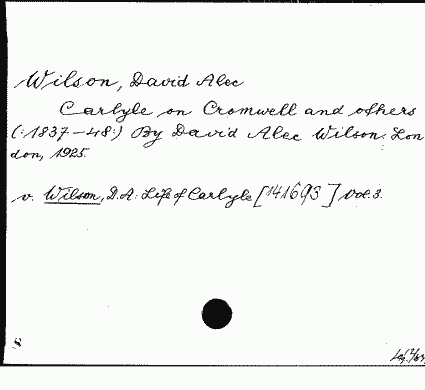 Wilson, David Alec
Carlyle on Cromwell and others
(:1837-48:) By David Alec Wilson. Lon
don, 1925.
v. Wilson, D.A: Life of Carlyle [141693] Vol. 3.
S